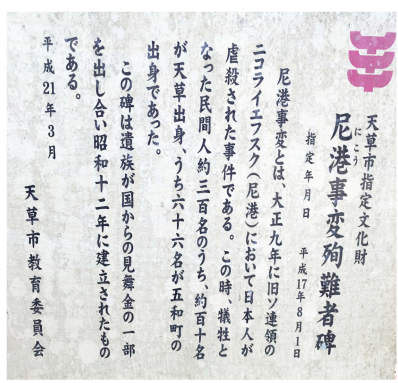 天草市指定文化財
にこう
尼港事変殉難者碑
指定年月日 平成17年8月1日
尼港事変とは、大正九年に旧ソ連領の
ニコライエフスク(尼港)において日本人が
虐殺された事件である。この時、犠牲と
なった民間人約三百名のうち、約百十名
が天草出身、うち六十六名が五和町の
出身であった。
この碑は遺族が国からの見舞金の一部
を出し合い昭和十二年に建立されたもの
である。
平成21年3月
天草市教育委員会